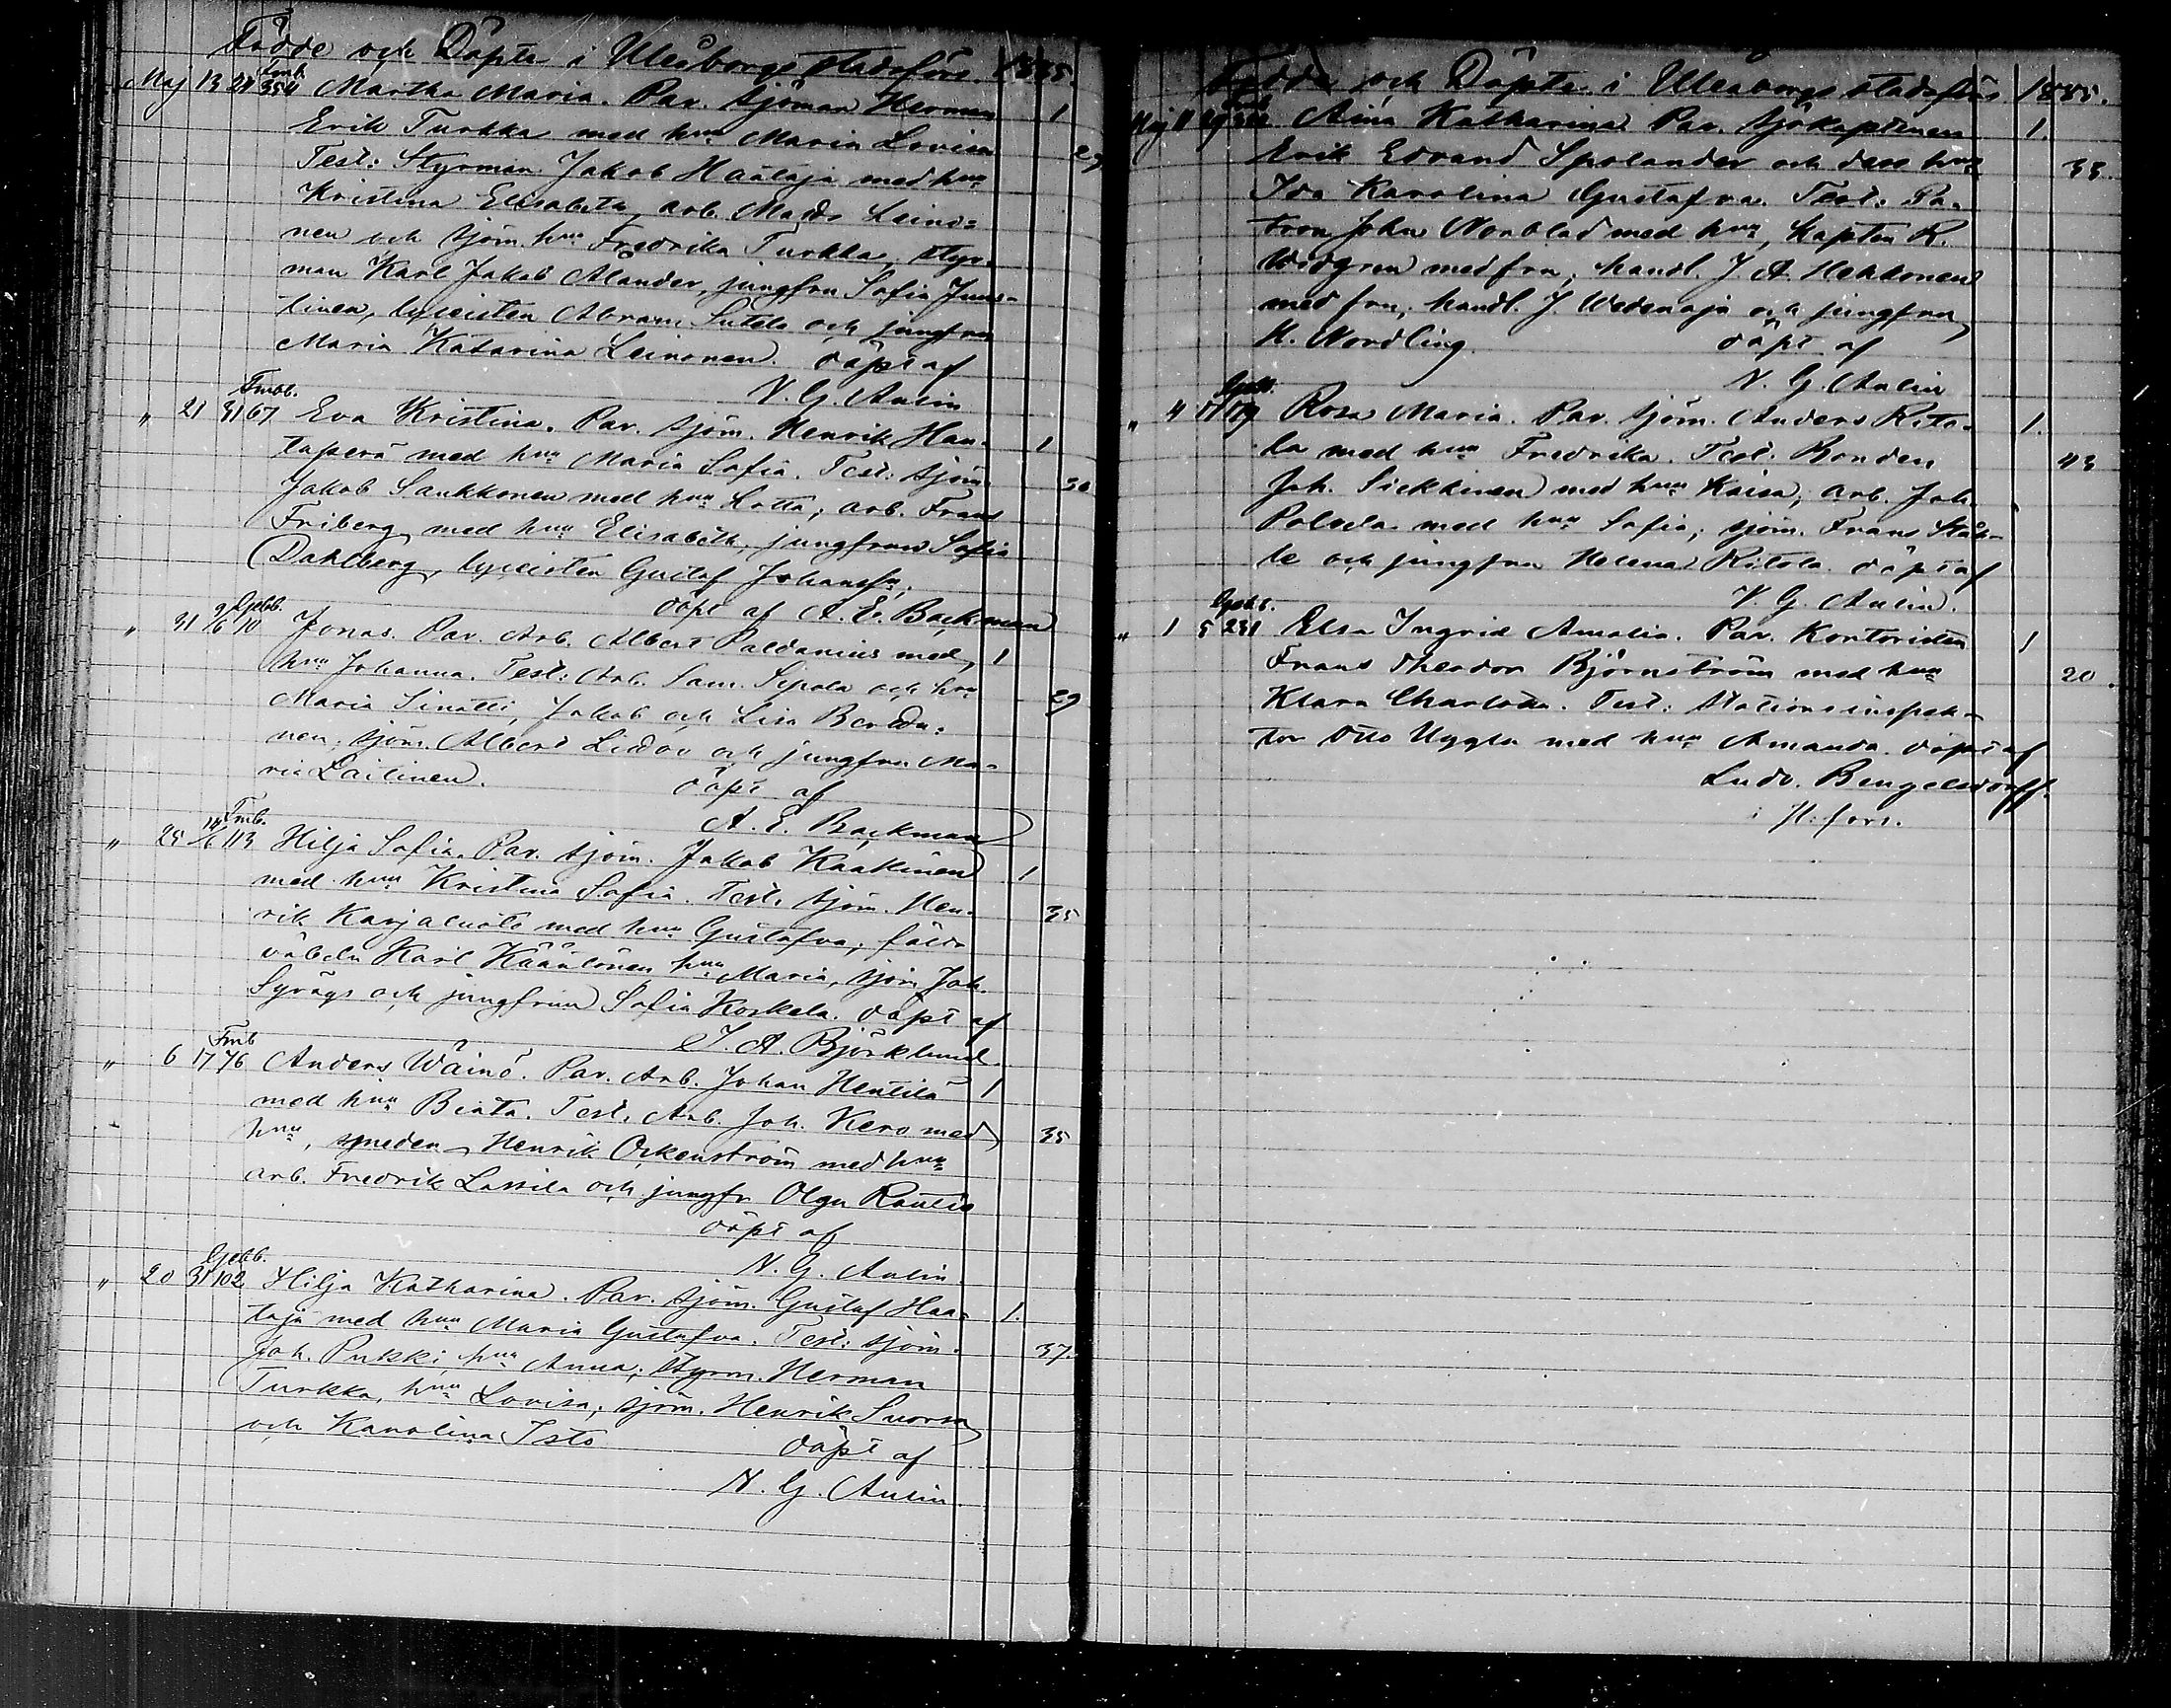 Födde och Döpte i Uleåborgs stadsförs. 1885.
Fmb.
Maj 13 24 354 Martha Maria. Par. sjöman Herman 1
Erik Turkka med hu Maria Lovisa 29
Test: Styrman Jakob Haataja med hu
Kristina Elisabeth, arb. Matts Leino=
nen och sjöm. hu Fredrika Turkka, styr-
man Karl Jakob Alander, jungfru Sofia Juus-
linen, lyceisten Abram Sutela och jungfru
Maria Katarina Leinonen. döpt af
N. G. Aulin
Fmbb.
" 21 31 67 Eva Kristina. Par. sjöm. Henrik Han- 1
taperä med hu Maria Sofia. Test: sjöm. 30
Jakob Saukkonen med hu Lotta; arb. Frans
Friberg med hu Elisabeth, jungfrun Sofia
Dahlberg, lyceisten Gustaf Johansson,
döpt af A. E. Backman
Gjebb.
" 31 9/6 10 Jonas. Par. Arb. Albert Paldanius med 1
hu Johanna. Test: Arb. Sam. Sipola och hu 29
Maria Jakob och Lisa
nen; sjöm. Albert och jungfru Ma-
ria Laitinen. döpt af
A. E. Backman
Fmb.
" 25 14/6 113 Hilja Sofia. Par. sjöm. Jakob Kaakinen 1
med hu Kristina Sofia. Test. sjöm. Hen- 35
rik Karjaluoto med hu Gustafva; fält-
väbeln Karl hu Maria, sjöm Joh.
Syväys och jungfrun Sofia Koskela. döpt af
J. A. Björklund.
Fmb
" 6 17 76 Anders Wäinö. Par. Arb. Johan Henttilä 1
med hu Beata. Test. Arb. Joh. Kero med 35
hu, smeden Henrik Ockenström med hu
arb. Fredrik Lassila och jungfr Olga Rautio
döpt af
N. G. Aulin
Gjebb.
" 20 31 102 Hilja Katharina. Par. sjöm. Gustaf Haa- 1.
taja med hu Maria Gustafva. Test: sjöm. 37.
Joh. Pukki, hu Anna; styrm. Herman
Turkka, hu Lovisa; sjöm. Henrik Suorsa
och Karolina Isto döpt af
N. G. Aulin.
Födde och Döpte i Uleåborgs stadsförs 1885.
Maj 11 Aina Katharina Par. sjökaptenen 1.
Erik Edvard Spolander och dess hu 33.
Ida Karolina Gustafva. Test. Pa-
tron John Norblad med hu, kapten R.
Widgren med fru, handl. J. A. Hekkonen
med fru, handl. J. Wedenoja och jungfrun
H. Nordling. döpt af
N. G. Aulin
" 4 17 119 Rosa Maria. Par. sjöm. Anders Rito- 1.
la med hu Fredrika. Test. Bonden 43
Joh. Siekkinen med hu Kaisa; arb. Joh.
Polvela med hu Sofia; sjöm. Frans Ståh-
le och jungfru Helena Ritola. döpt af
N. G. Aulin.
Gjebb.
" 1 5 231 Elsa Ingrid Amalia. Par. Kontoristen 1
Frans Theodor Björnström med hu 20.
Klara Charlotta. Test: Stationsinspek-
tor Otto Uggla med hu Amanda. döpt af
Ludv. Bengelsdorff.
i H:fors.